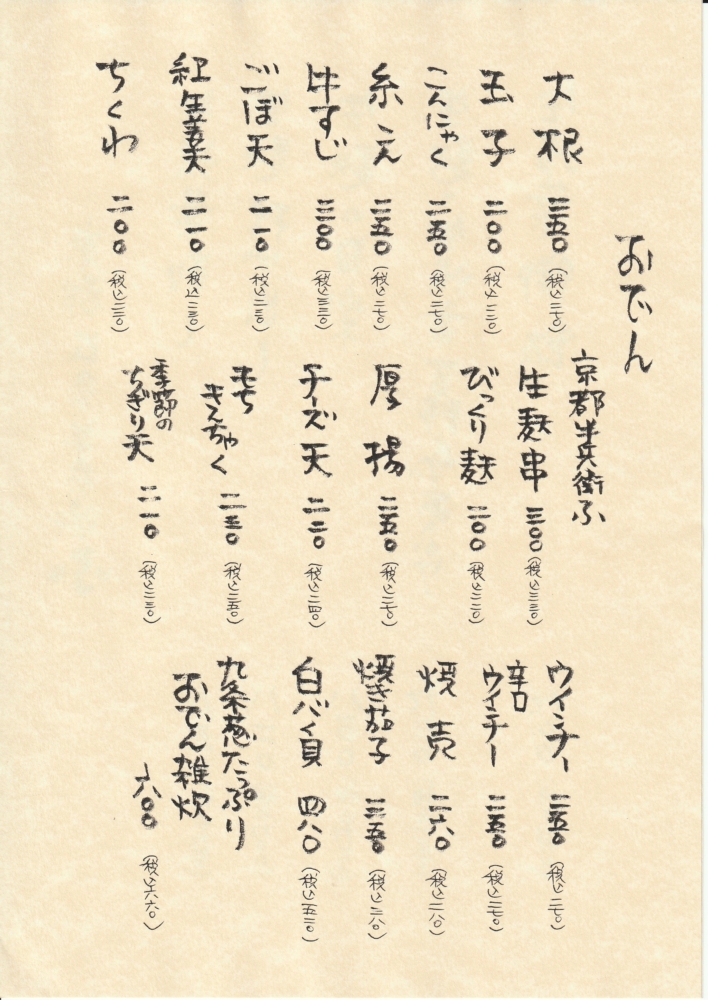 おでん
大根 二五〇 (税込二七〇)
玉子 二〇〇 (税込二二〇)
こんにゃく 二五〇 (税込二七〇)
糸こん 二五〇 (税込二七〇)
牛すじ 三〇〇 (税込三三〇)
ごぼ天 二一〇 (税込二三〇)
紅生姜天 二一〇 (税込二三〇)
ちくわ 二〇〇 (税込二二〇)
京都半兵衛ふ
生麩串 三〇〇 (税込三三〇)
びっくり麩 二〇〇 (税込二二〇)
厚揚 二五〇 (税込二七〇)
チーズ天 二二〇 (税込二四〇)
もち
きんちゃく 二三〇 (税込二五〇)
季節の
ちぎり天 二一〇 (税込二三〇)
ウインナー 二五〇 (税込二七〇)
辛口
ウインナー 二五〇 (税込二七〇)
焼売 二六〇 (税込二八〇)
焼き茄子 三五〇 (税込三八〇)
白バイ貝 四八〇 (税込五二〇)
九条葱たっぷり
おでん雑炊
六〇〇 (税込六六〇)